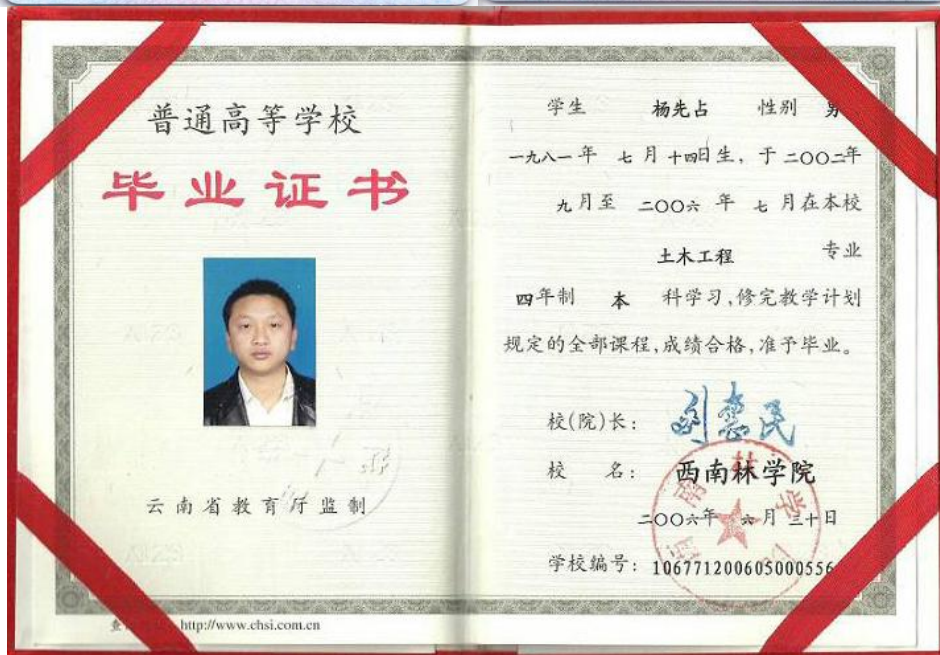 普通高等学校
毕业证书
云南省教育厅监制
http://www.chsi.com.cn
学生 杨先占 性别 男
一九八一年 七月十四日生, 于二〇〇二年
九月至 二〇〇六年 七月在本校
土木工程 专业
四年制 本 科学习,修完教学计划
规定的全部课程,成绩合格,准予毕业。
校(院)长:
校 名: 西南林学院
二〇〇六年 六月 三十日
学校编号: 106771200605000556